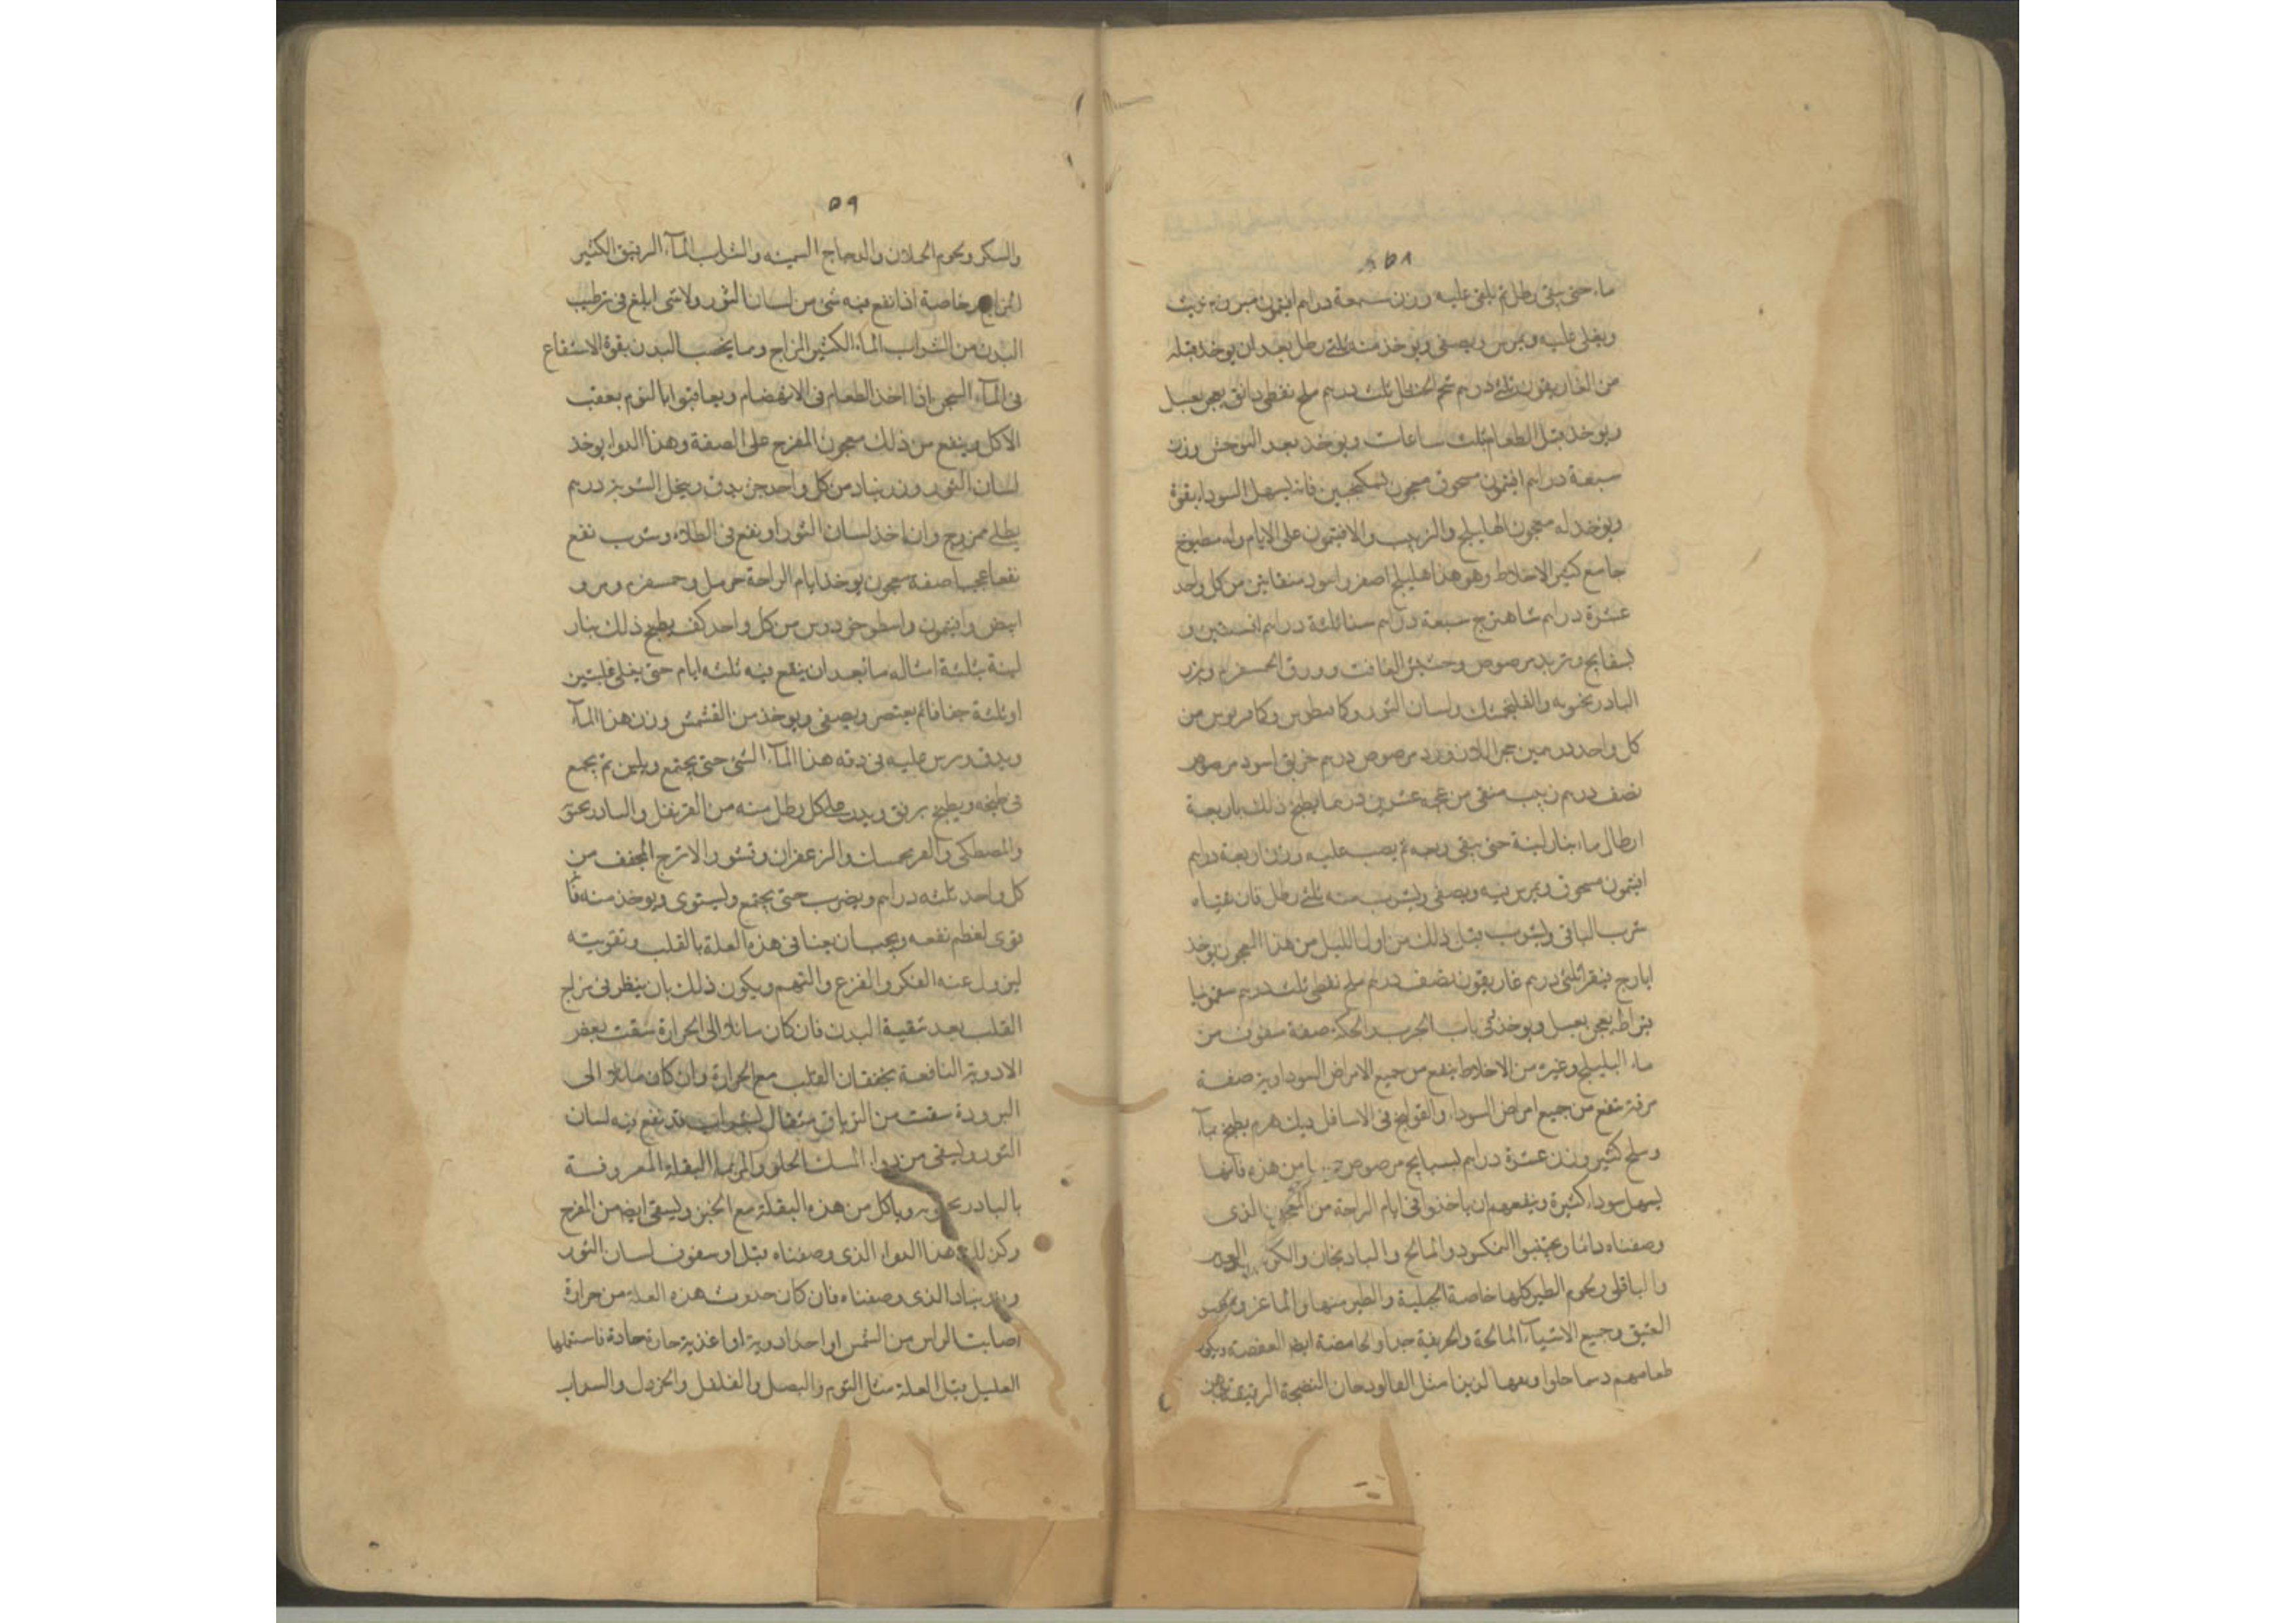 ٥٨
ماء حتى يبقى رطل ثم يلقى عليه وزن سبعة دراهم افيتمون مبرد بزيت
ويغلى غليه ويمرس ويصفى ويوخذ منه ثلثى رطل بعد ان يوخذ قبله
من الغاريقون ثلثى درهم شحم الحنظل ثلث درهم ملح نفطى دانق يعجن بعسل
ويوخذ قبل الطعام بثلث ساعات ويوخذ بعد التوحش وزن
سبعة دراهم افيتمون مسحوق معجون بسكنجبين فانه يسهل السوداء بقوة
ويوخذ له معجون الهليلج والزبيب والافيتمون على الايام وله مطبوخ
جامع كثير الاخلاط وهو هذا هليلج اصفر واسود منقايين من كل واحد
عشرة دراهم شاهترج سبعة دراهم سنا ثلثة دراهم افسنتين و
بسفايج وتربد مرصوص وحشيش الغافت وورق الحمسفرم وبزر
البادرنجبويه والفلنجمشك ولسان الثور وكمافيطوس وكمادريوس من
كل واحد درهمين حجر اللازورد مرصوص درهم خربق اسود مرصوص
نصف درهم زبيب منقى من عجمه عشرين درهما يطبخ ذلك باربعة
ارطال ماء بنار لينة حتى يبقى ربعه ثم يصب عليه وزن اربعة دراهم
افيتمون مسحوق ويمرس فيه ويصفى ويشرب منه ثلثى رطل فان غثياه
شرب الباقى ويشرب قبل ذلك من اول الليل من هذا المعجون يوخذ
ايارج فيقرا ثلثى درهم غاريقون نصف درهم ملح نفطى ثلث درهم سقمونيا
قيراط يعجن بعسل ويوخذ فى باب الجرب والحكة صفة سفوف من
ماء الهليلج وغيره من الاخلاط ينفع من جميع الامراض السوداوية صفة
مرقة تنفع من جميع امراض السوداء والقولنج فى الاسافل ديك هرم يطبخ بماء
وملح كثير وزن عشرة دراهم بسبايج مرصوص من هذه فانها
يسهل سوداء كثيرة وينفعهم ان ياخذوا فى ايام الراحة من المعجون الذى
وصفناه دائما ويجتنبوا النمكسود والمالح والبادنجان والكرنب والعدس
والباقلى ولحوم الطير كلها خاصة الجبلية والطير منها والماعز والخبز
العتيق وجميع الاشياء المالحة والحريفة جدا والحامضة ايضا العفصة ويكون
طعامهم دسما حلوا وبعها لذيذا مثل الفالوذجات النضيجة الرقيقة بدهن
٥٩
والسكر ولحوم الحملان والدجاج السمينه والشراب الماء الرقيق الكثير
المزاج خاصة اذا نقع فيه شى من لسان الثور ولا شى ابلغ فى ترطيب
البدن من الشراب الماء الكثير المزاج ومما يخصب البدن بقوة الاستنقاع
فى الماء السخن اذا اخذ الطعام فى الانهضام ويعاقبوا بالنوم بعقب
الاكل وينفع من ذلك معجون المفرح على الصفة وهذا الدوا يوخذ
لسان الثور وزرنباد من كل واحد جزء يدق وينخل الشربه درهم
بطلى ممزوج وان اخذ لسان الثور او نقع فى الطلاء وشرب نفع
نفعا عجيبا صفة معجون يوخذ ايام الراحة حرمل وحمسفرم ومرو
ابيض وافيتمون واسطوخودوس من كل واحد كف يطبخ ذلك بنار
لينة بثلثة امثاله ماء بعد ان ينقع فيه ثلثه ايام حتى يغلى غليتين
او ثلثة جفافا ثم يعتصر ويصفى ويوخذ من القشمش وزن هذا الماء
ويدق ويرش عليه فى دقه هذا الماء الشى حتى يجتمع ويلين ثم يجمع
فى طبخه ويطبخ برفق ويذر على كل رطل منه من القرنفل والبادرنجبويه
والمصطكى والفرنجمشك والزعفران وقشور الاترج المجفف من
كل واحد ثلثه دراهم ويضرب حتى يجتمع ويستوى ويوخذ منه فانا
نرى لعظم نفعه ويجب ان يعنا فى هذه العلة بالقلب وتقويته
ليزول عنه الفكر والفزع والتهم ويكون ذلك بان ينظر فى مزاج
القلب بعد تنقية البدن فان كان مائلا الى الحرارة سقيت بعض
الادوية النافعة بخفقان القلب مع الحرارة وان كان مائلا الى
البرودة سقيت من الترياق مثقال بشراب قد نقع فيه لسان
الثور ويسقى من دواء المسك الحلو والمر بماء البقلة المعروفة
بالبادرنجبويه وياكل من هذه البقلة مع الخبز ويسقى ايضا من المفرح
وكذلك هذا الدواء الذى وصفناه قبل او سفوف لسان الثور
وزرنباد الذى وصفناه فان كان حدوث هذه العلة من حرارة
اصابت الراس من الشمس او اخذ ادوية او اغذية حارة حادة فاستعملها
العليل قبل العلة مثل الثوم والبصل والفلفل والخردل والسداب